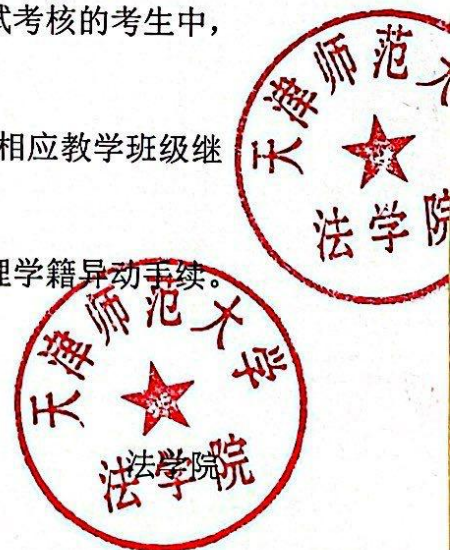 试考核的考生中，
相应教学班级继
理学籍异动手续。
法学院
天津师范大
法学院
天津师范大学
法学院